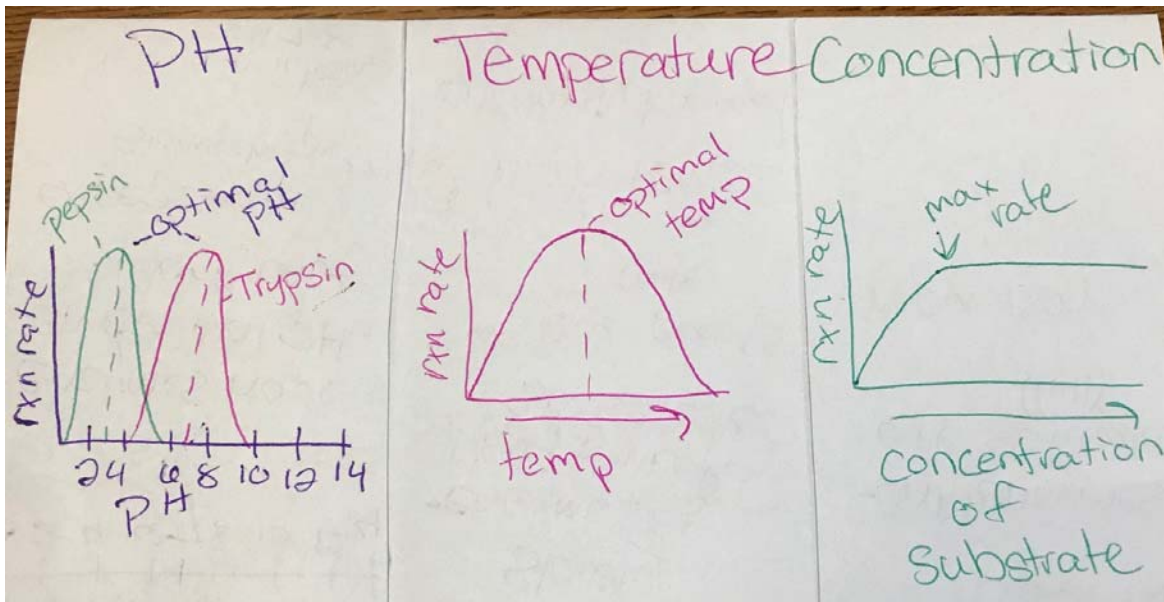 PH
pepsin
optimal
pH
Trypsin
rxn rate
2 4 6 8 10 12 14
PH
Temperature
optimal
temp
rxn rate
temp
Concentration
max
rate
rxn rate
concentration
of
substrate